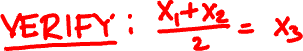 VERIFY: (x₁+x₂)/2 = x₃